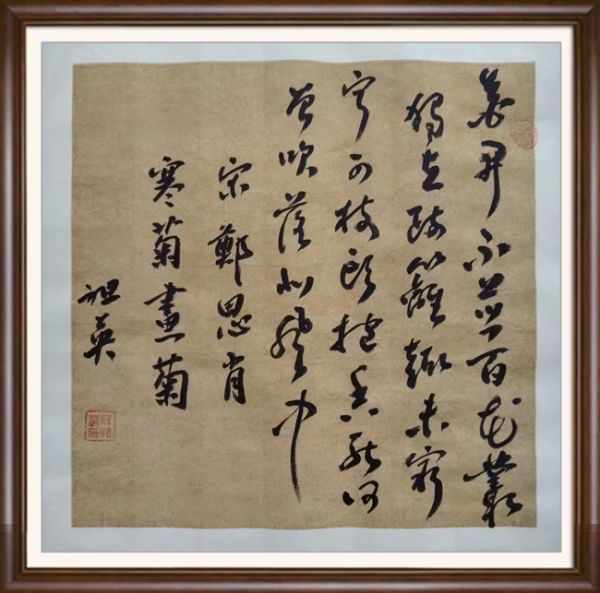 花開不並百花叢
獨立疏籬趣未窮
寧可枝頭抱香死何
曾吹落北風中
宋鄭思肖
寒菊畫菊
祖英